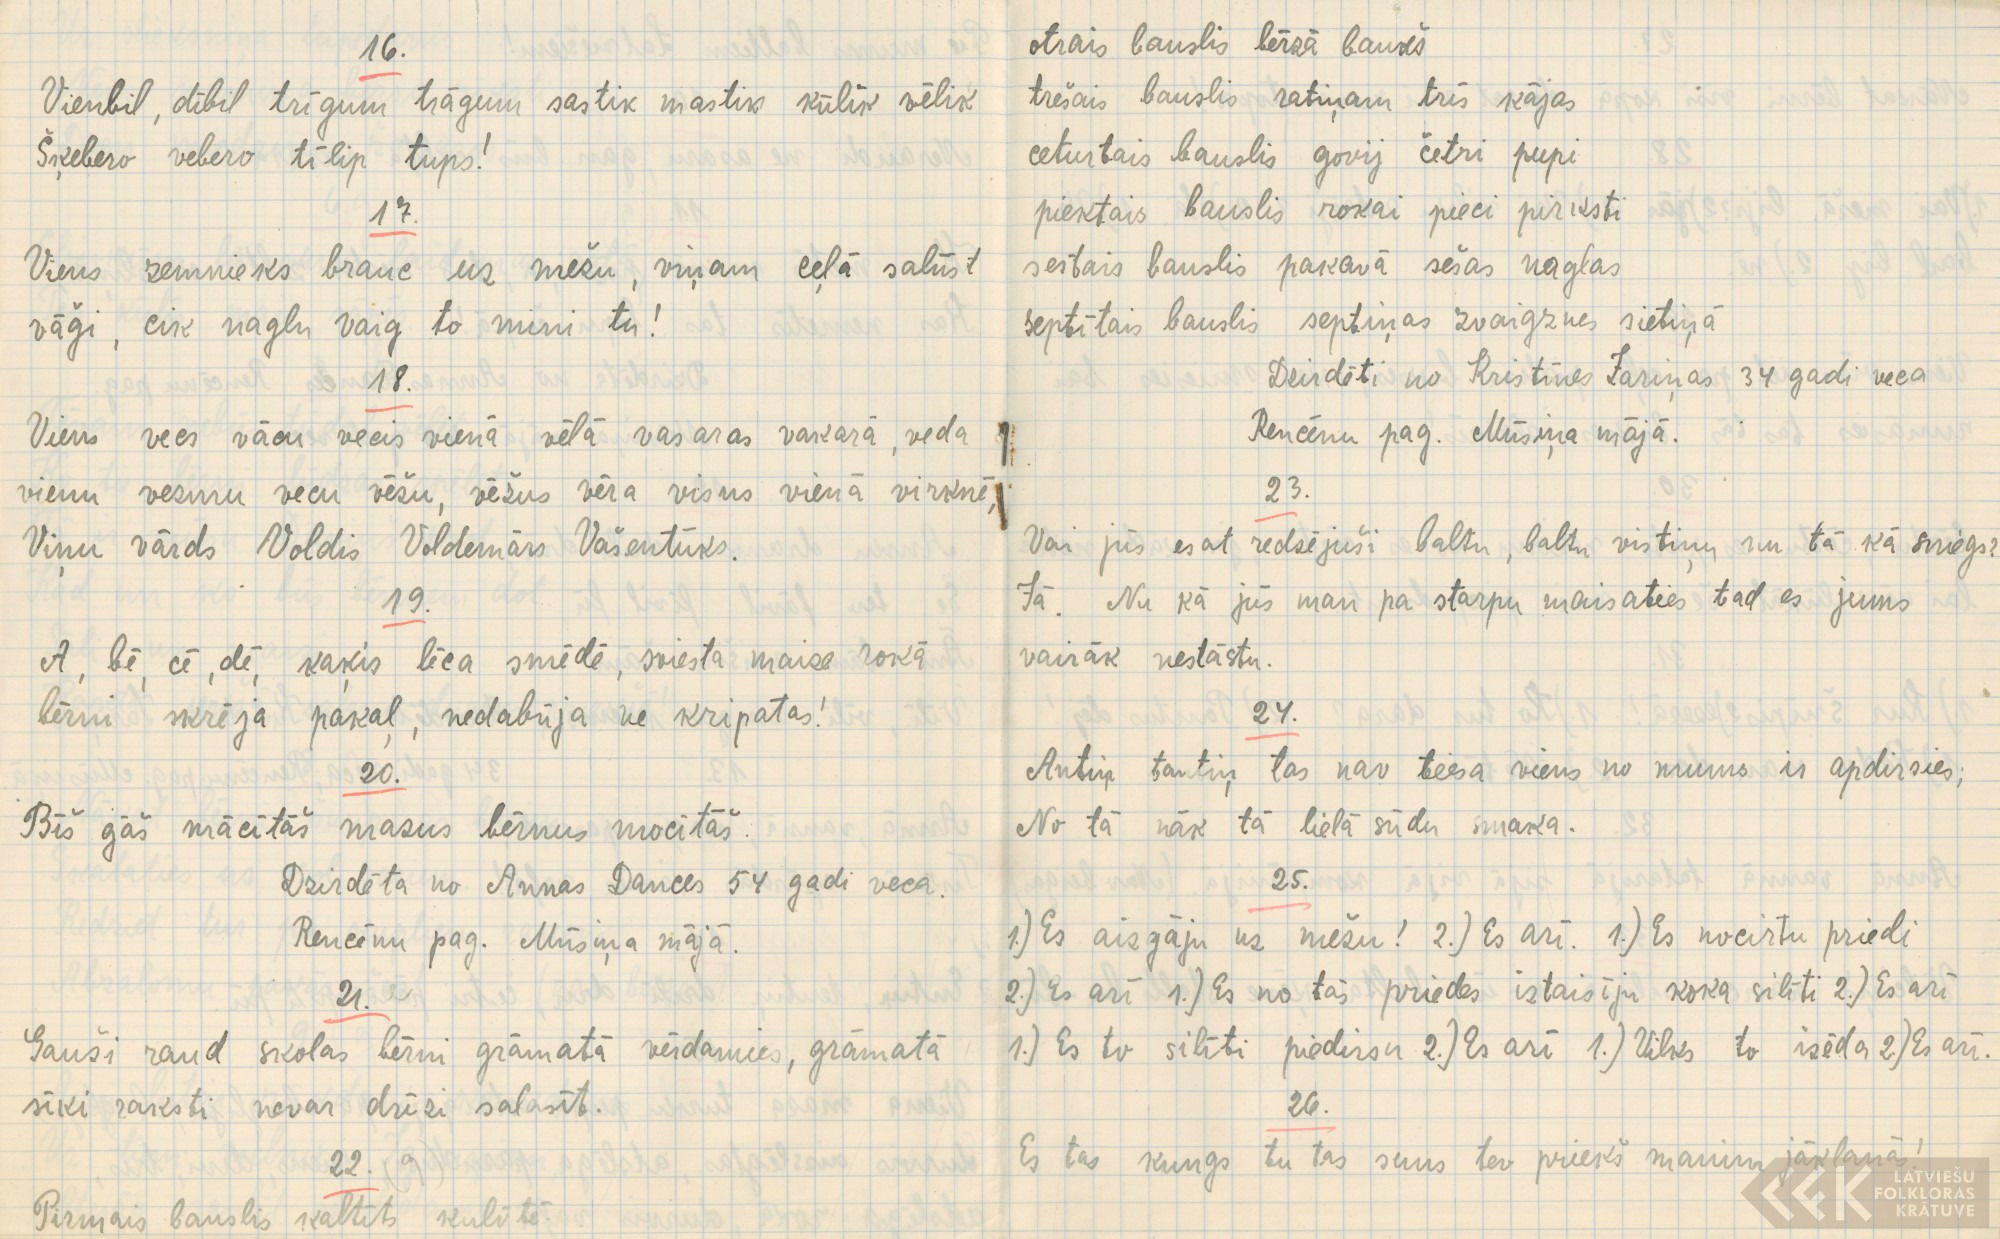 16.
Vienbil, dibil trīgum trāgum sastik mastik kūlīk vēlik
Šķebero vebero tīlip tups!
17.
Viens zemnieks brauc uz mežu, viņam ceļā salūst
vāģi, cik naglu vaig to mini tu!
18.
Viens vecs vācu vecis vienā vēlā vasaras vakarā, veda
vienu vezmu vecu vēžu, vēžus vēra visus vienā virknē,
Viņu vārds Voldis Voldemārs Vašentūks.
19.
A, bē, cē, dē, kaķis lēca smēdē, sviesta maize rokā
bērni skrēja pakaļ, nedabūja ne kripatas!
20.
Bīš gāš mācītāš mazus bērnus mocītāš.
Dzirdēta no Annas Dances 54 gadi veca.
Rencēnu pag. Mūsiņa mājā.
21.
Gauši raud skolas bērni grāmatā vērdamies, grāmatā
sīki raksti nevar drīzi salasīt.
22.
Pirmais bauslis kaltīts kulītē.
otrais bauslis bērzā baušš
trešais bauslis ratiņam trīs kājas
ceturtais bauslis govij četri pupi
piektais bauslis rokai pieci pirksti
sestais bauslis pakavā sešas naglas
septītais bauslis septiņas zvaigznes sietiņā
Dzirdēti no Kristīnes Zariņas 34 gadi veca
Rencēnu pag. Mūsiņa mājā.
23.
Vai jūs esat redzējuši baltu, baltu vistiņu nu tā kā sniegs?
Jā. Nu kā jūs man pa starpu maisaties tad es jums
vairāk nestāstu.
24.
Antiņ tantiņ tas nav tiesa viens no mums ir apdirsies;
No tā nāk tā lielā sūdu smaka.
25.
1.) Es aizgāju uz mežu! 2.) Es arī. 1.) Es nocirtu priedi
2.) Es arī 1.) Es no tās priedes iztaisīju koka silīti 2.) Es arī
1.) Es to silīti piedirsu 2.) Es arī 1.) Vilks to izēda 2.) Es arī.
26.
Es tas kungs tu tas suns tev priekš manim jāklanās!
LATVIEŠU
FOLKLORAS
KRĀTUVE